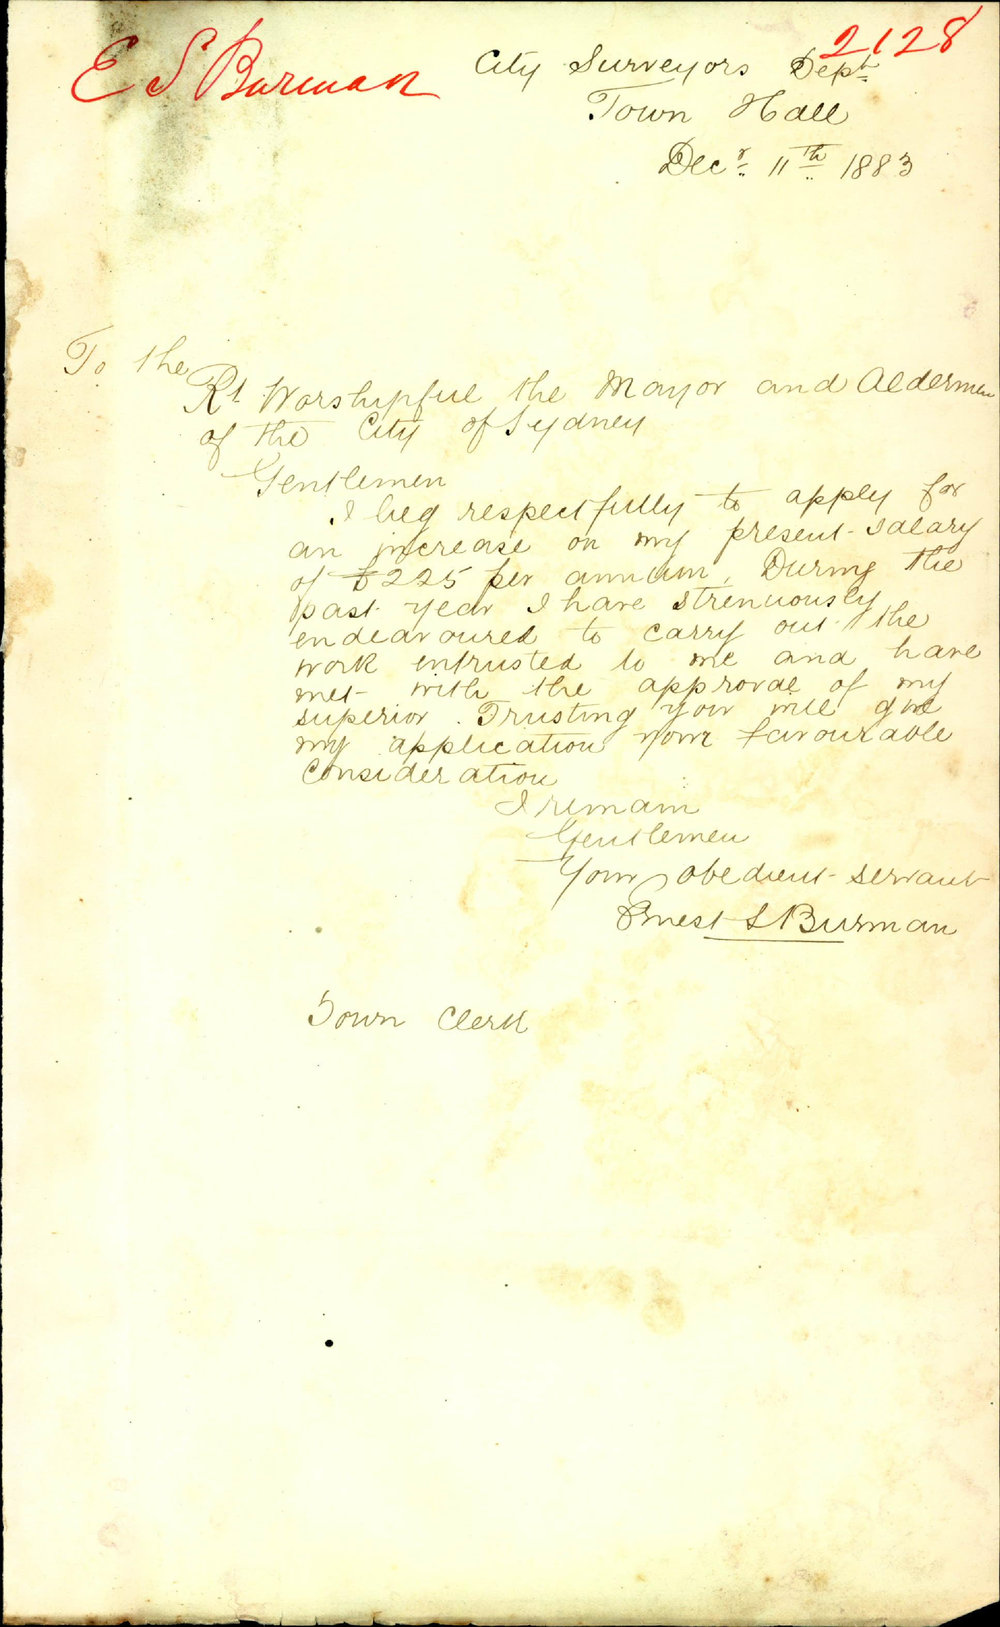 E S Burman
2128
City Surveyors Dept
Town Hall
Decr 11th 1883
To the
Rt Worshipful the Mayor and Aldermen
of the City of Sydney
Gentlemen
I beg respectfully to apply for
an increase on my present salary
of £225 per annum. During the
past year I have strenuously
endeavoured to carry out the
work entrusted to me and have
met with the approval of my
superior. Trusting you will give
my application your favourable
consideration
I remain
Gentlemen
Your obedient servant
Ernest S Burman
Town Clerk